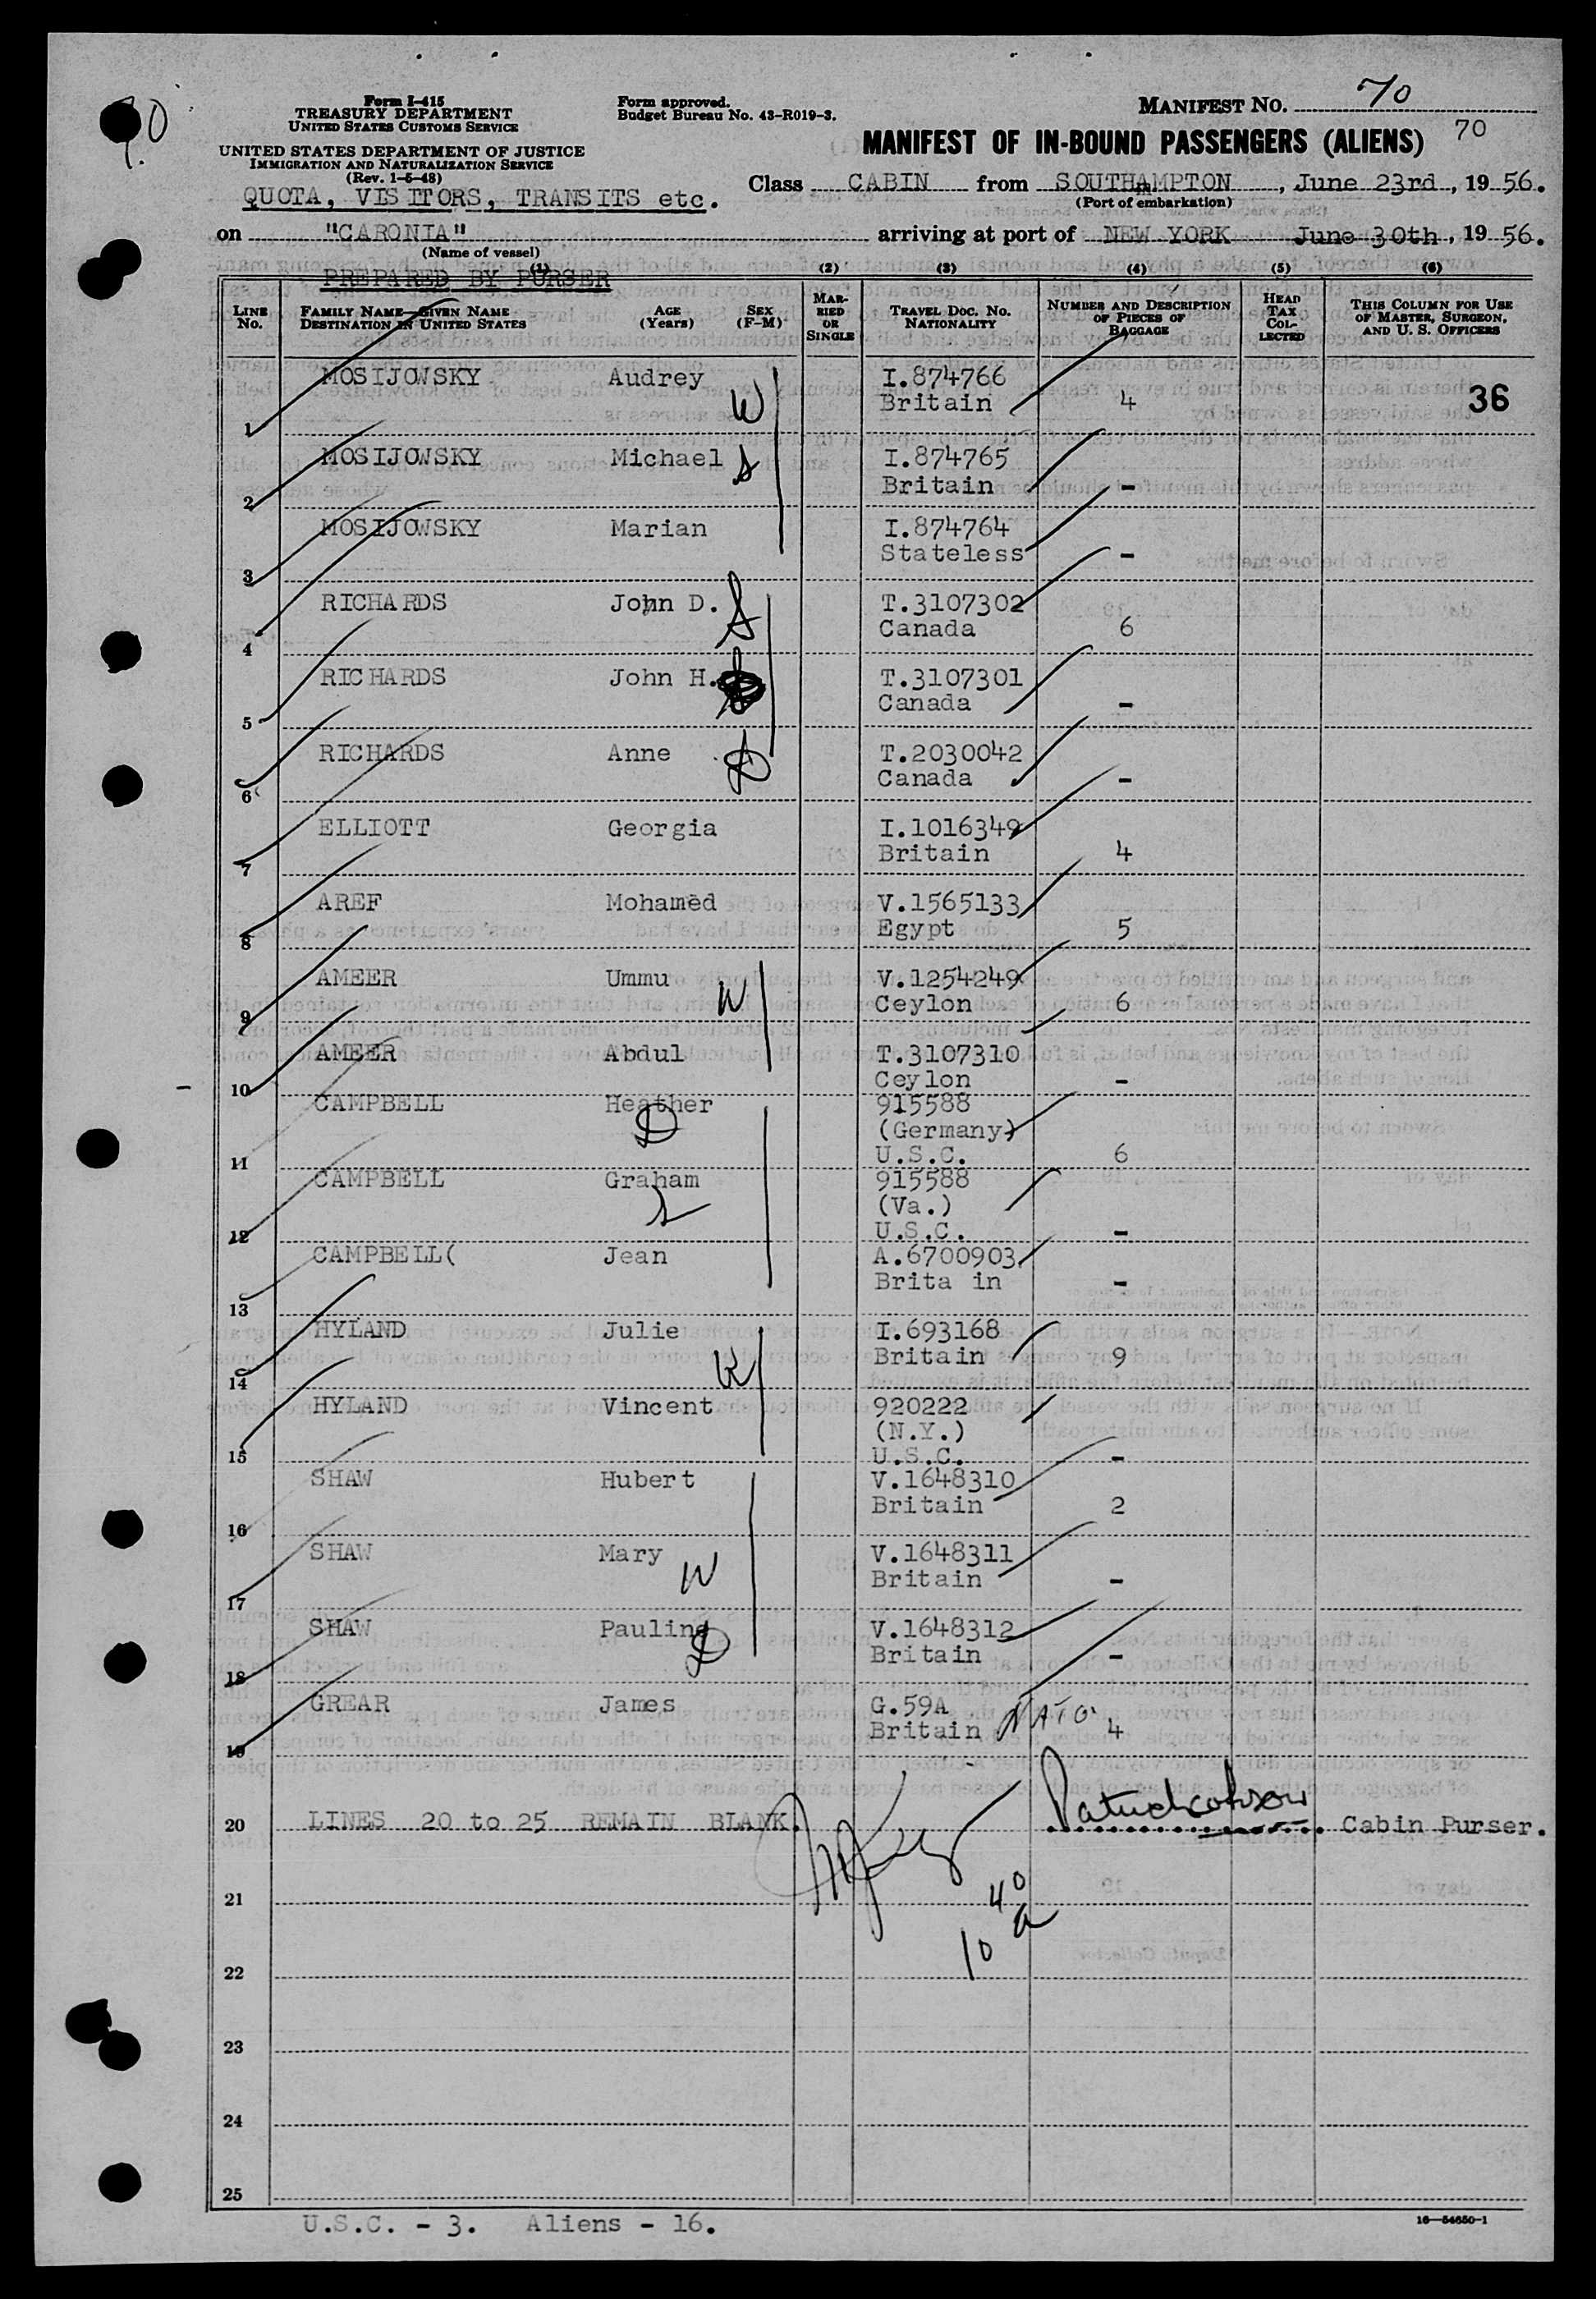 70
Form I-415
TREASURY DEPARTMENT
UNITED STATES CUSTOMS SERVICE
UNITED STATES DEPARTMENT OF JUSTICE
IMMIGRATION AND NATURALIZATION SERVICE
(Rev. 1-5-48)
Form approved.
Budget Bureau No. 43-R019-3.
MANIFEST NO. 70
MANIFEST OF IN-BOUND PASSENGERS (ALIENS) 70
QUOTA, VISITORS, TRANSITS etc.
Class CABIN from SOUTHAMPTON, June 23rd, 1956.
(Port of embarkation)
on "CARONIA" arriving at port of NEW YORK June 30th, 1956.
(Name of vessel)
PREPARED BY PURSER
(1) (2) (3) (4) (5) (6)
LINE No. FAMILY NAME—GIVEN NAME DESTINATION IN UNITED STATES AGE (Years) SEX (F-M) MARRIED OR SINGLE TRAVEL DOC. NO. NATIONALITY NUMBER AND DESCRIPTION OF PIECES OF BAGGAGE HEAD TAX COLLECTED THIS COLUMN FOR USE OF MASTER, SURGEON, AND U. S. OFFICERS
MOSIJOWSKY Audrey W I.874766
1 Britain 4 36
MOSIJOWSKY Michael S I.874765
2 Britain -
MOSIJOWSKY Marian I.874764
3 Stateless -
RICHARDS John D. S T.3107302
4 Canada 6
RICHARDS John H. T.3107301
5 Canada -
RICHARDS Anne D T.2030042
6 Canada -
ELLIOTT Georgia I.1016349
7 Britain 4
AREF Mohamed V.1565133
8 Egypt 5
AMEER Ummu W V.1254249
9 Ceylon 6
AMEER Abdul T.3107310
10 Ceylon -
CAMPBELL Heather D 915588
(Germany)
11 U.S.C. 6
CAMPBELL Graham S 915588
(Va.)
12 U.S.C. -
CAMPBELL( Jean A.6700903
13 Brita in -
HYLAND Julie W I.693168
14 Britain 9
HYLAND Vincent 920222
(N.Y.)
15 U.S.C. -
SHAW Hubert V.1648310
16 Britain 2
SHAW Mary W V.1648311
17 Britain -
SHAW Pauline D V.1648312
18 Britain -
GREAR James G.59A
19 Britain NATO 4
20 LINES 20 to 25 REMAIN BLANK. Cabin Purser.
21 40
22 10 a
23
24
25
U.S.C. - 3. Aliens - 16.
16-54650-1